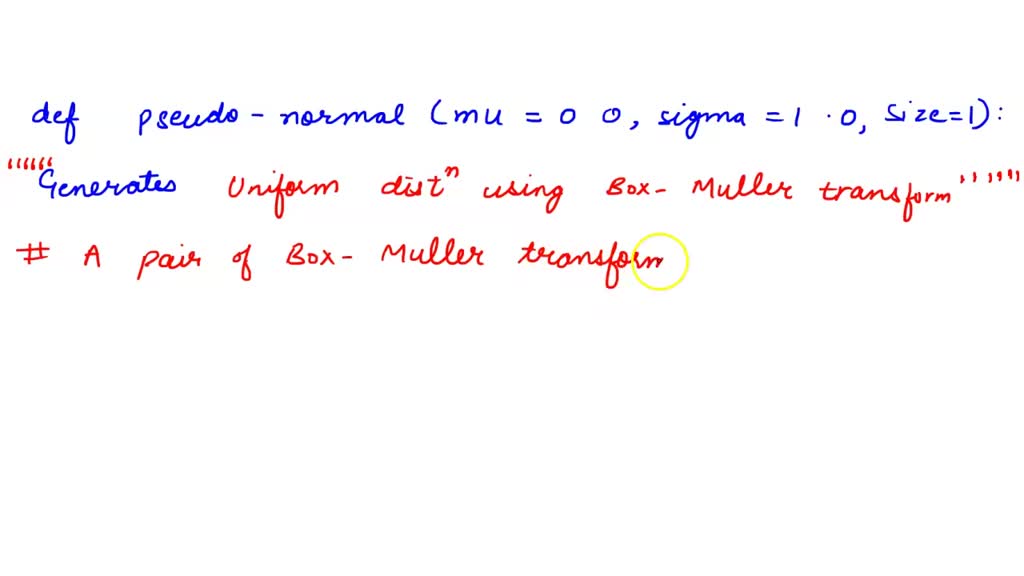 def pseudo-normal (mu = 0 0, sigma = 1 . 0, size=1):
"""Generates Uniform distⁿ using Box- Muller transform"""
# A pair of Box- Muller transform